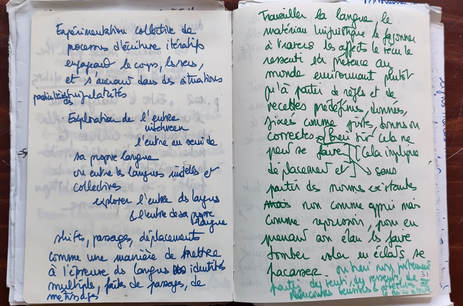 Expérimentation collective de
processus d'écriture itératifs
engageant le corps, les sens,
et s'ancrant dans des situations
particulières
Exploration de l'entre
inbetween
l'entre au sein de
sa propre langue
ou entre les langues inédites et
collectives
explorer l'entre des langues
& l'entre de sa propre
langue
shifts, passages, déplacements
comme une manière de mettre
à l'épreuve des langues identités
multiples, faites de passages, de
métissages
Travailler la langue, le
matériau linguistique le façonner
à travers les affects le vécu le
ressenti sa présence au
monde environnant plutôt
qu'à partir de règles et de
recettes prédéfinies, données,
fixées comme justes, bonnes ou
correctes. Bien sûr cela ne
peut se faire (cela implique
déplacement et) sans
partir des normes existantes
mais non comme appui mais
comme repoussoir, pour en
prenant son élan les faire
tomber voler en éclats se
fracasser
ou bien
partir des